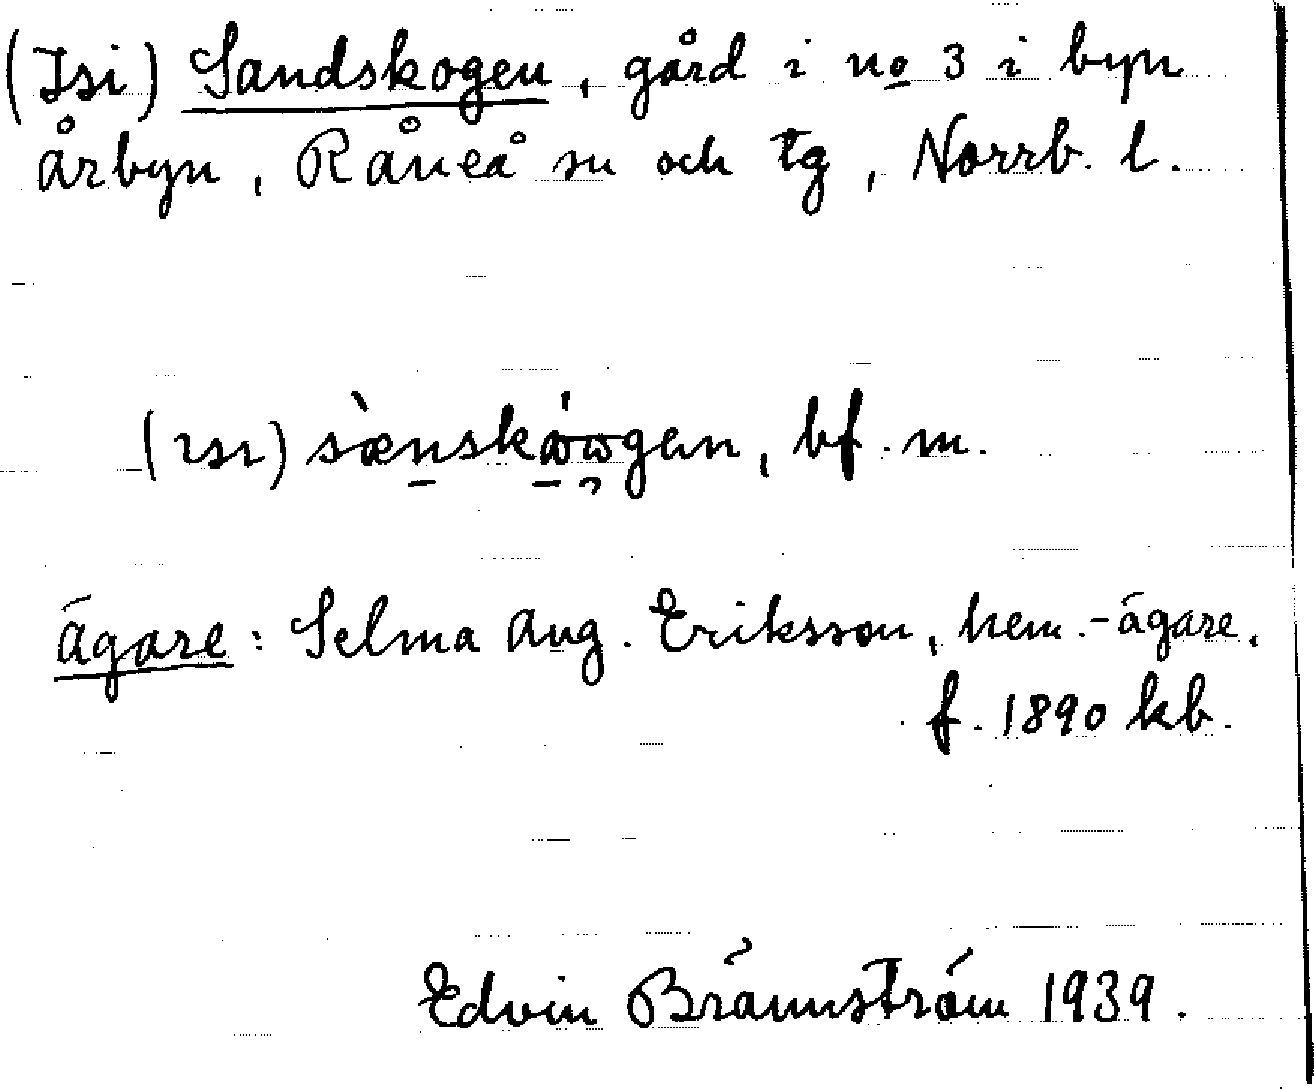 (Isi) Sandskogen, gård i no 3 i byn
Årbyn, Råneå sn och tg, Norrb. l.
(ısı) sæ̀nskɷ́ɷgen, bf. m.
Ägare: Selma Aug. Eriksson, hem.-ägare,
f. 1890 kb.
Edvin Brännström 1939.